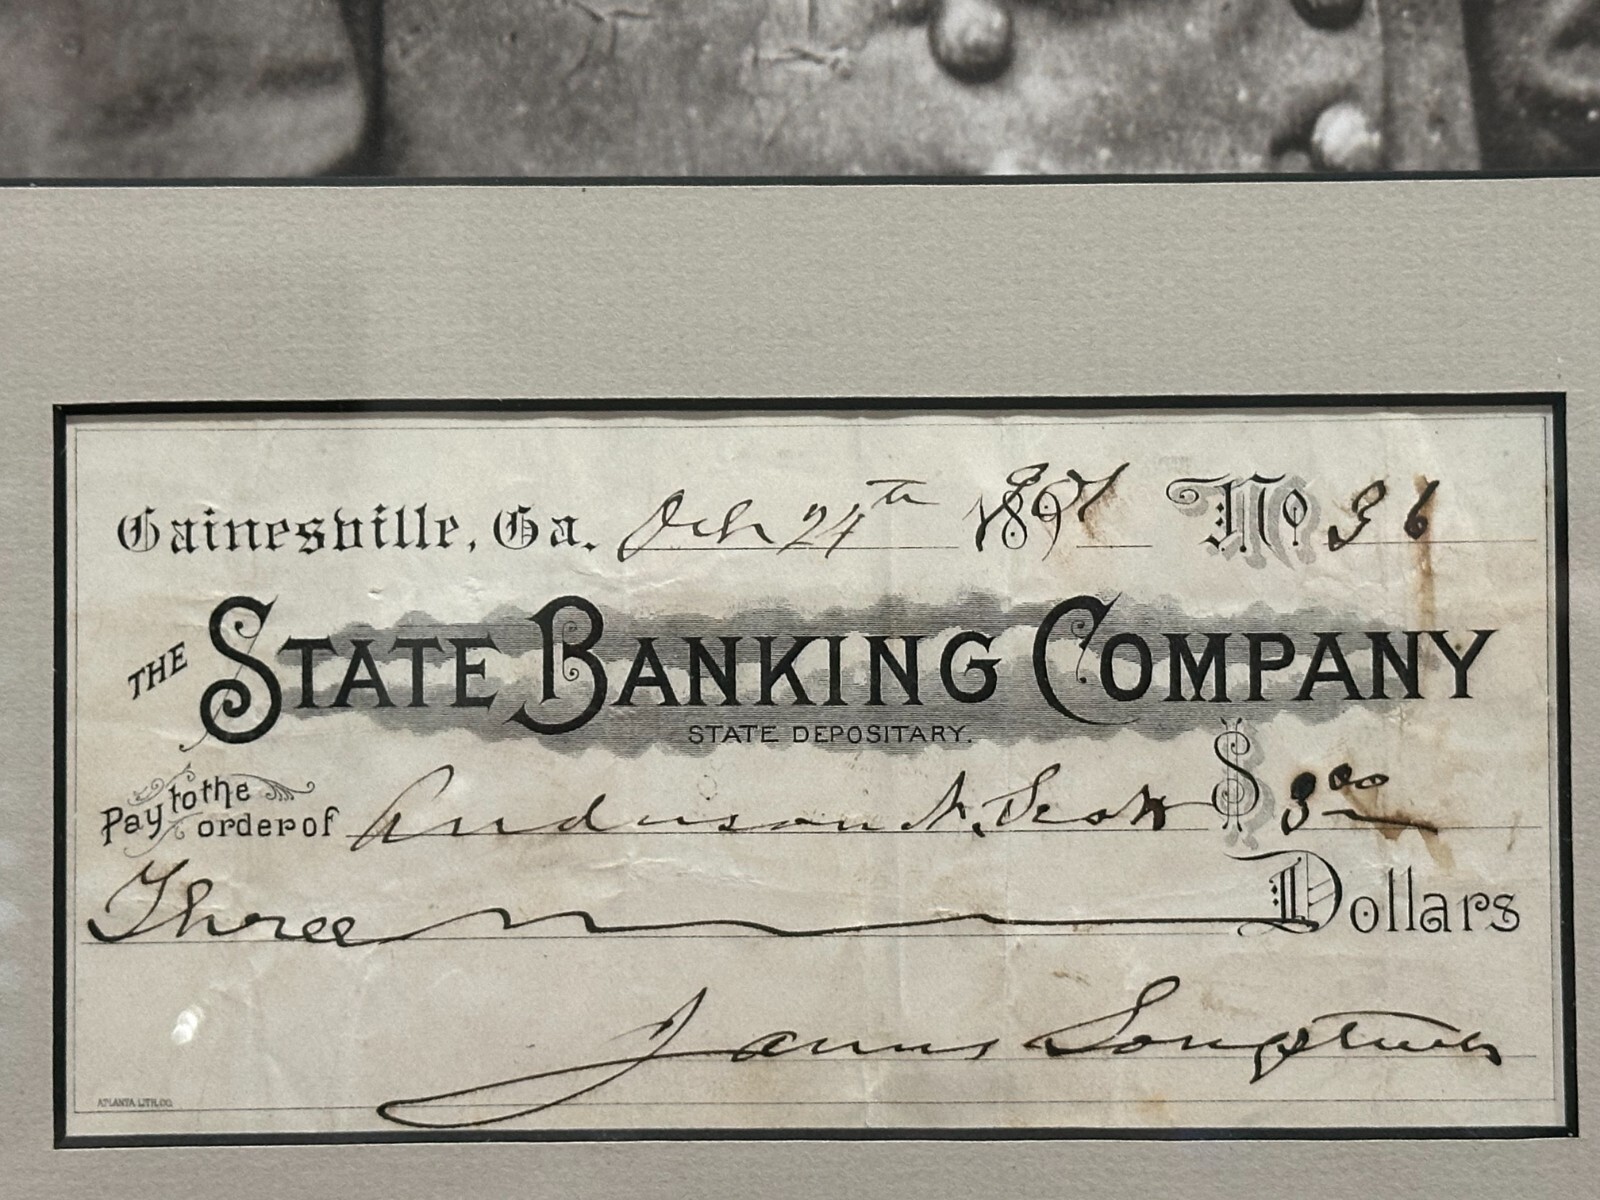 Gainesville, Ga. Oct 24th 1891 No 36
THE STATE BANKING COMPANY
STATE DEPOSITARY.
Pay to the order of Anderson A. Scott $ 3.00
Three Dollars
James Longstreet
ATLANTA LITH. CO.